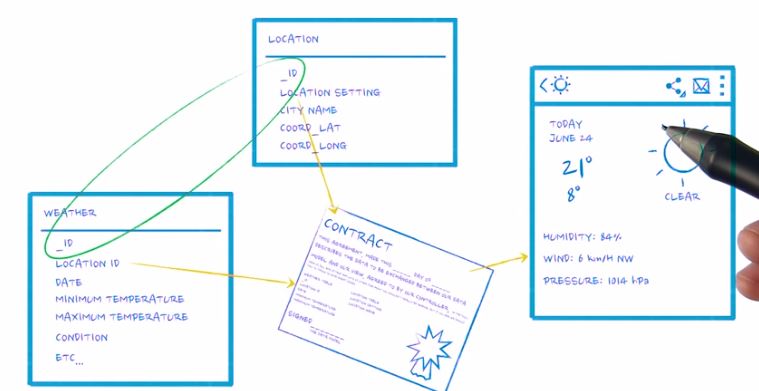 LOCATION
_ID
LOCATION SETTING
CITY NAME
COORD_LAT
COORD_LONG
WEATHER
_ID
LOCATION ID
DATE
MINIMUM TEMPERATURE
MAXIMUM TEMPERATURE
CONDITION
ETC...
CONTRACT
THIS AGREEMENT MADE THIS ______ DAY OF ______
DESCRIBES THE DATA TO BE EXCHANGED BETWEEN OUR DATA
MODEL AND OUR VIEW, AGREED TO BY OUR CONTROLLER.
SIGNED
TODAY
JUNE 24
21°
8°
CLEAR
HUMIDITY: 84%
WIND: 6 km/H NW
PRESSURE: 1014 hPa